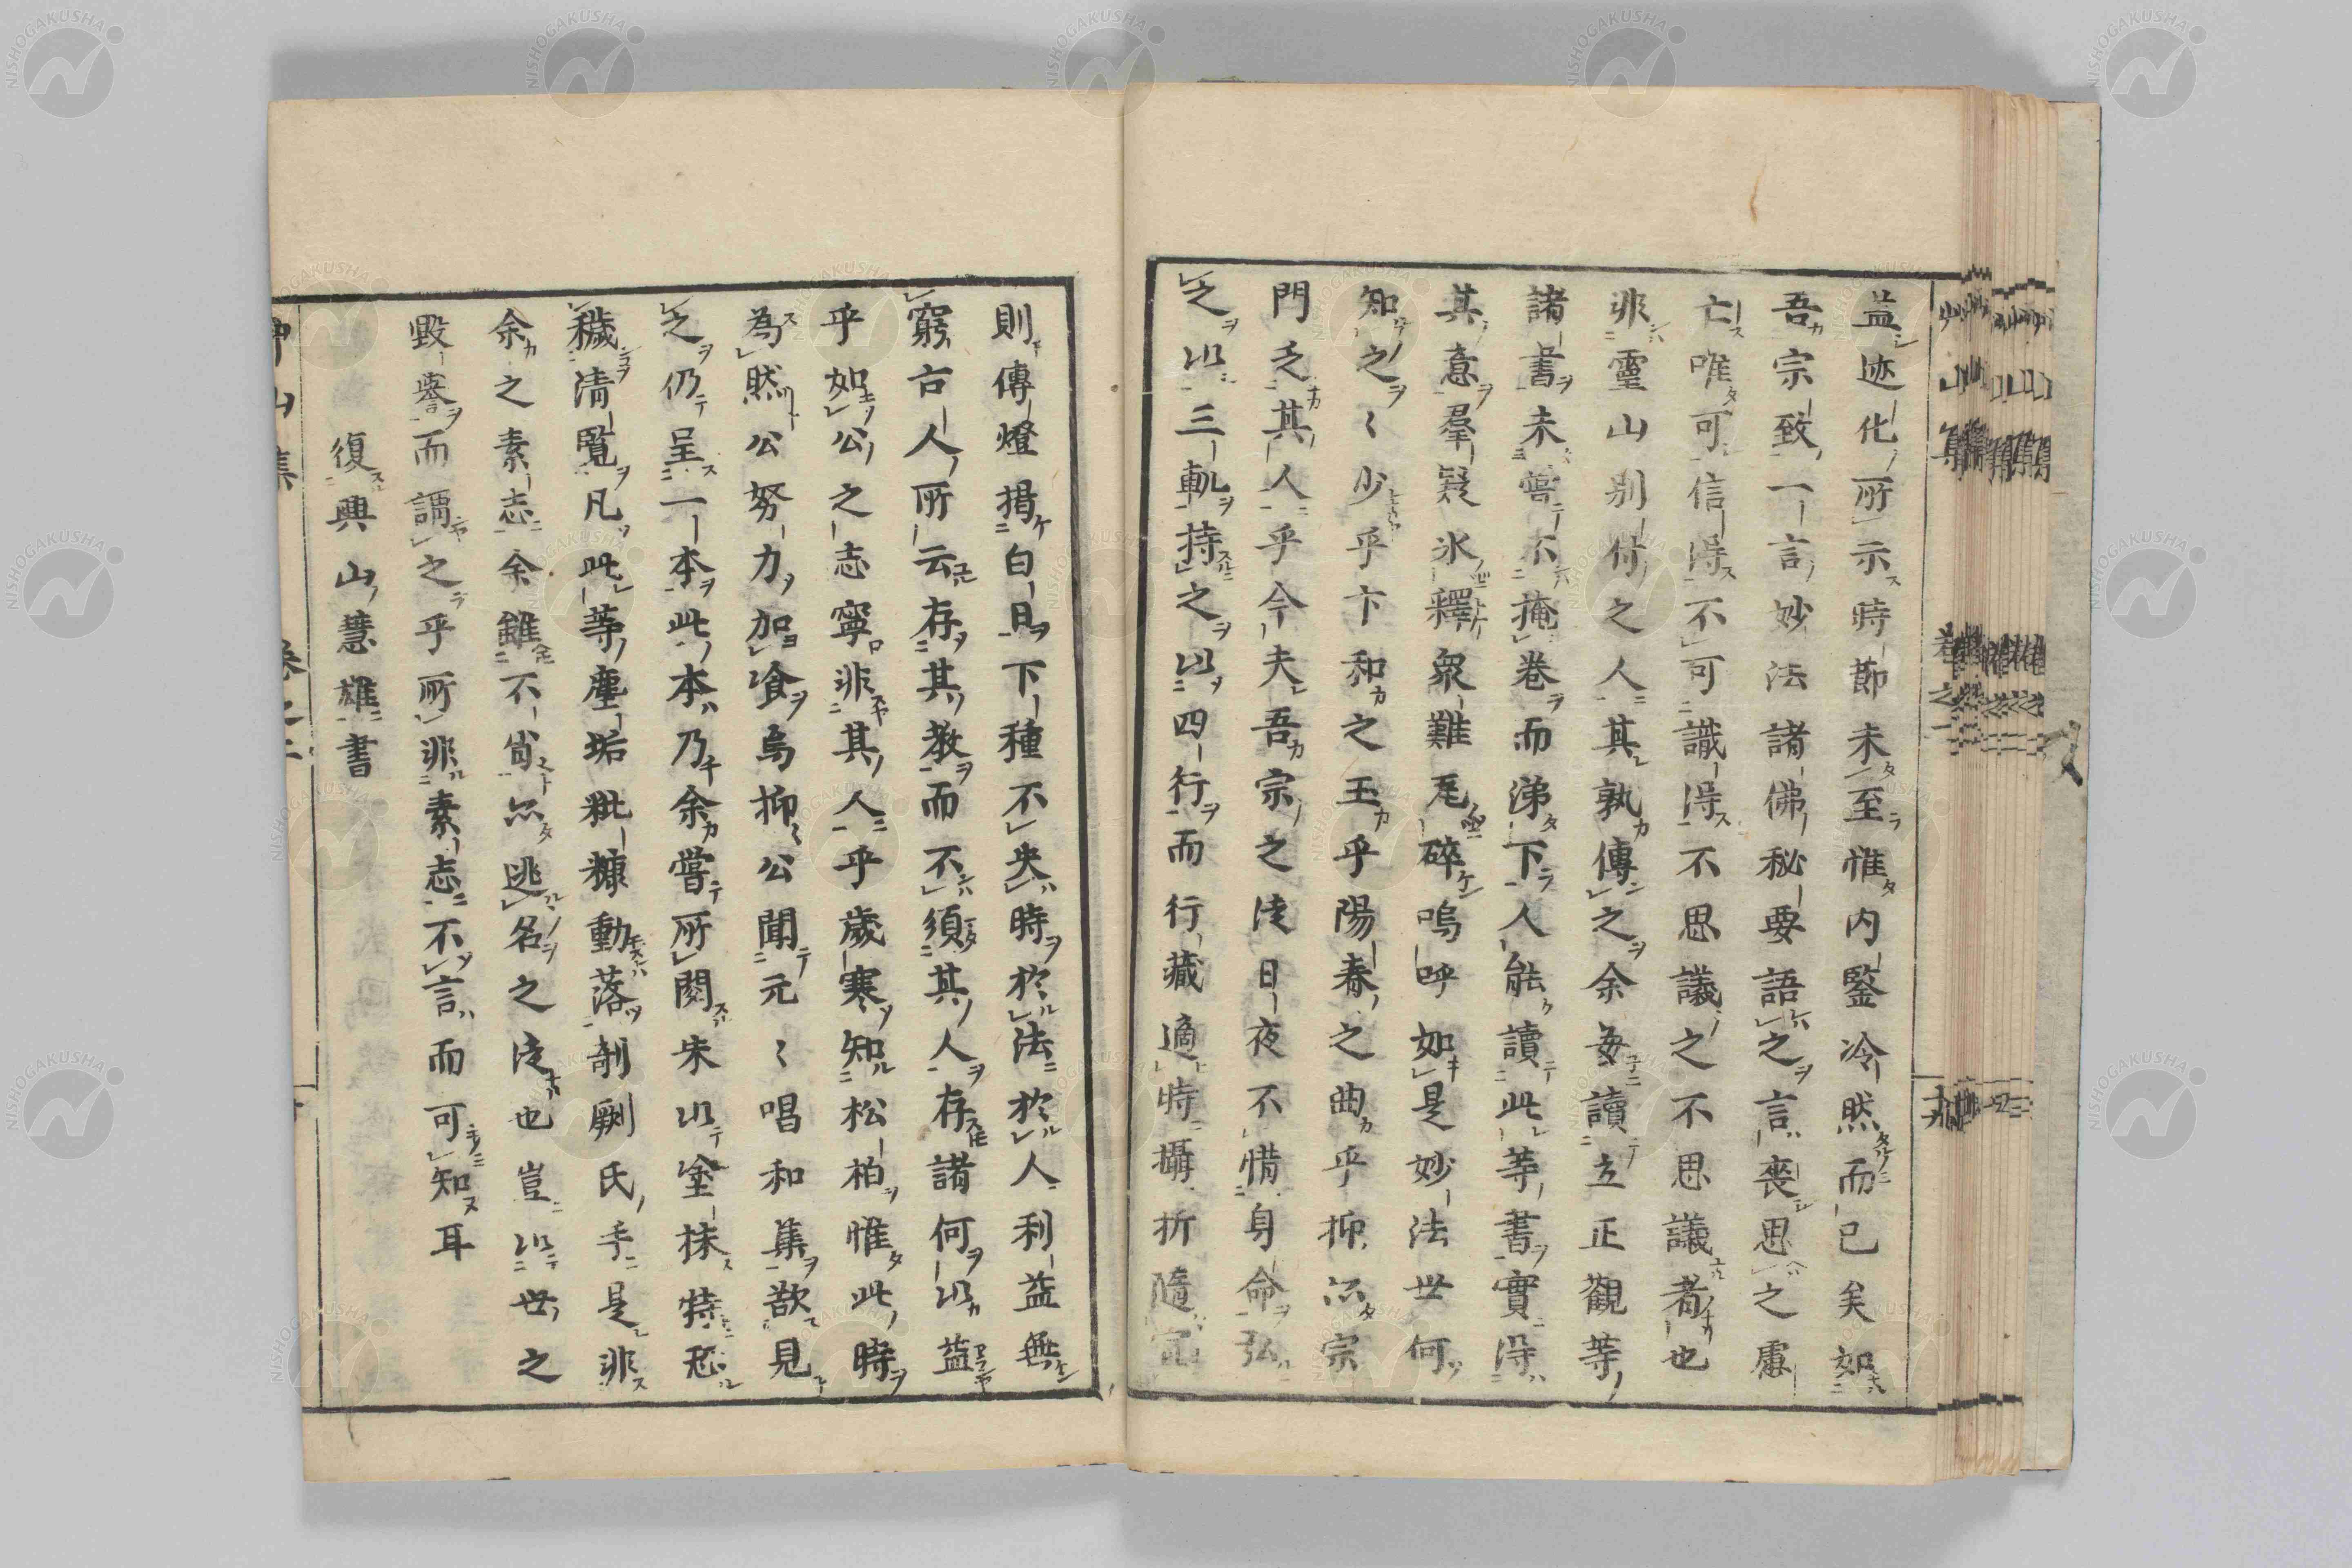 益迹化所示時節未至惟內鑒冷然而已矣如
吾宗致一言妙法諸佛秘要語之言喪思之慮
亡唯可信得不可識得不思議之不思議者也
非靈山別付之人其孰傳之余每讀立正觀等
諸書未嘗不掩卷而涕下人能讀此等書實得
其意羣疑氷釋衆難瓦碎嗚呼如是妙法世何
知之〻少乎卞和之玉乎陽春之曲乎抑亦宗
門乏其人乎今夫吾宗之徒日夜不惜身命弘
之以三軌持之以四行而行藏適時攝折隨
則傳燈揭白日下種不失時於法於人利益無
窮古人所云存其教而不須其人存諸何以益
乎如公之志寧非其人乎歲寒知松柏惟此時
為然公努力加飡焉抑〻公聞元〻唱和集欲見
之仍呈一本此本乃余嘗所閱朱以塗抹特恐
穢清覽凡此等塵垢粃糠動落剞劂氏手是非
余之素志余雖不肖亦逃名之徒也豈以世之
毀譽而謂之乎所非素志不言而可知耳
復興山慧雄書
NISHOGAKUSHA